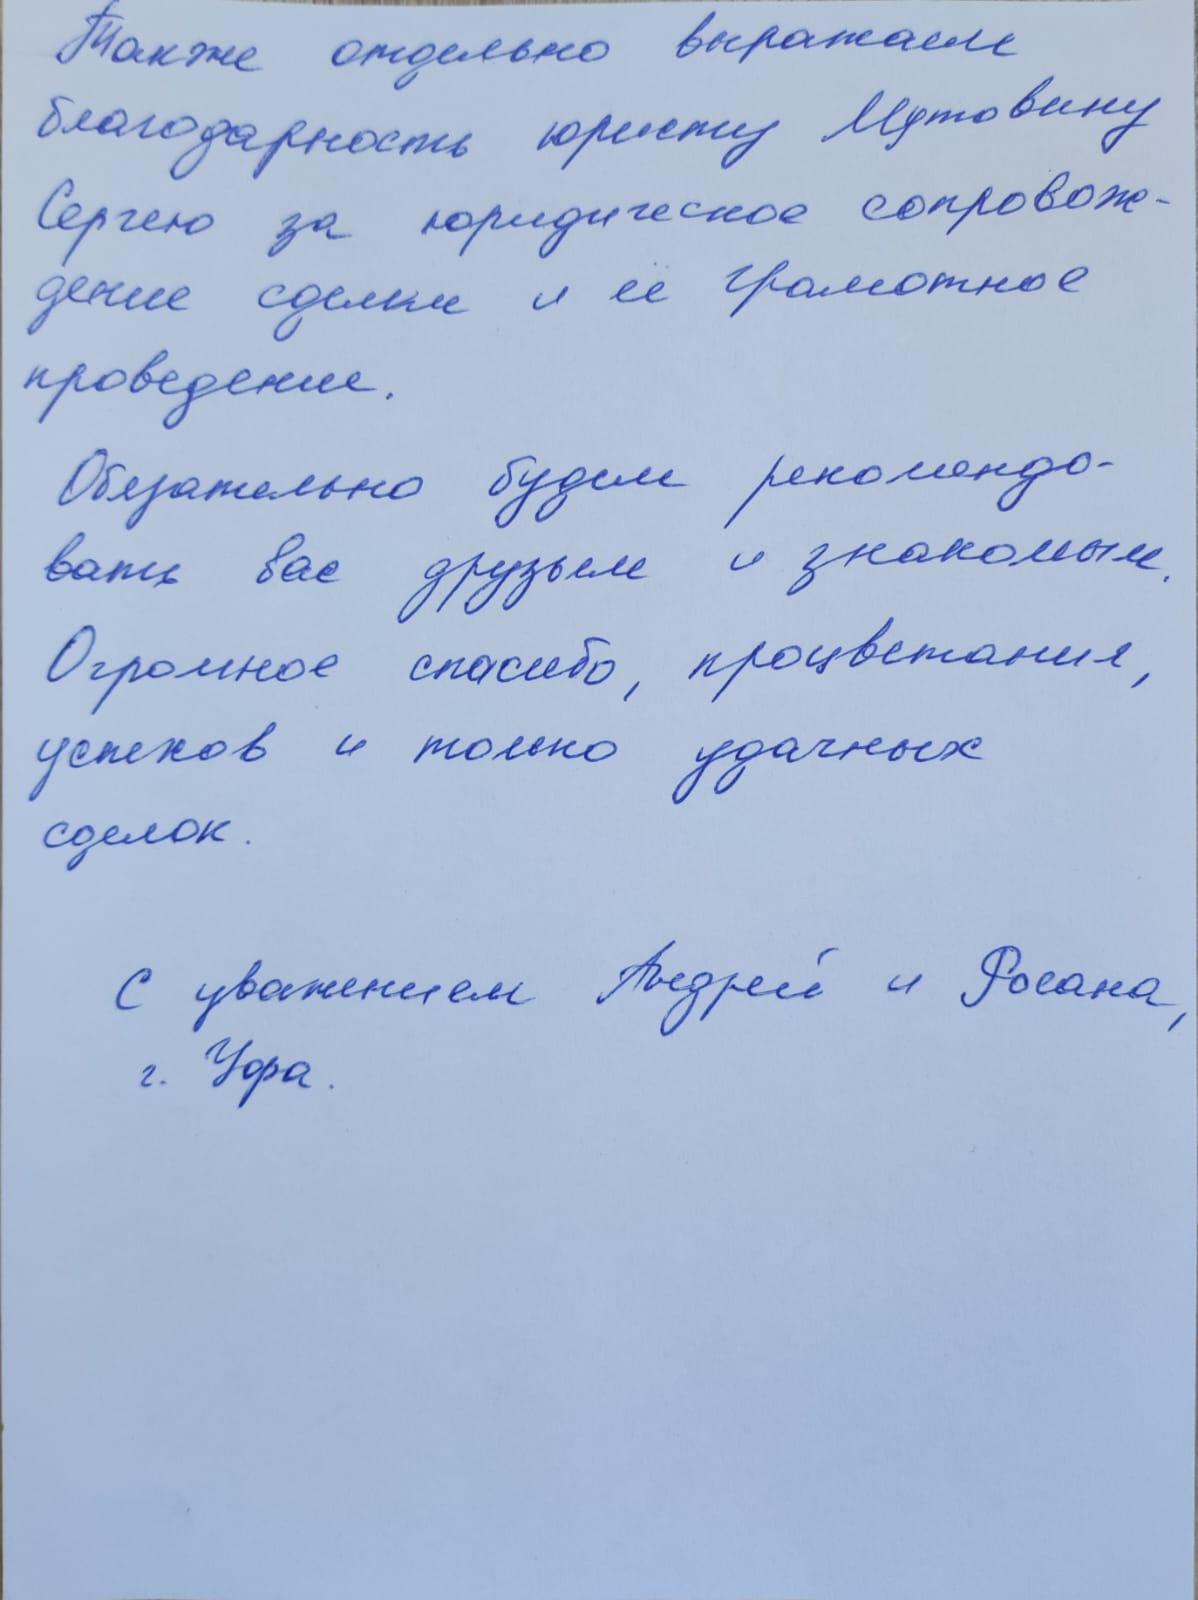 Также отдельно выражаем
благодарность юристу Мутовину
Сергею за юридическое сопровож-
дение сделки и её грамотное
проведение.
Обязательно будем рекомендо-
вать вас друзьям и знакомым.
Огромное спасибо, процветания,
успехов и только удачных
сделок.
С уважением Андрей и Росана,
г. Уфа.